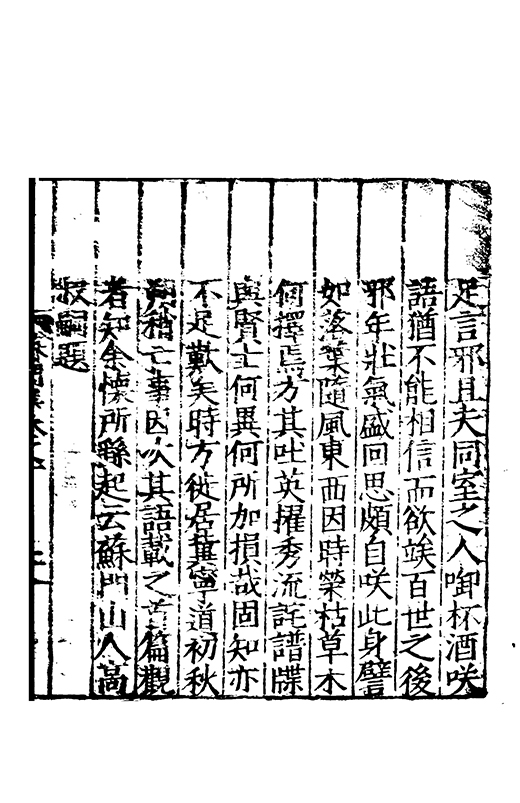 足言邪且夫同室之人啣杯酒咲
語猶不能相信而欲竢百世之後
邪年壯氣盛回思頗自咲此身譬
如落葉隨風東西因時榮枯草木
何擇焉方其吐英擢秀流詫譜牒
與賢士何異何所加損哉固知亦
不足歎矣時方徙居冀寧道初秋
稍亡事因次其語載之首篇觀
者知余懷所繇起云蘇門山人高
叔嗣題